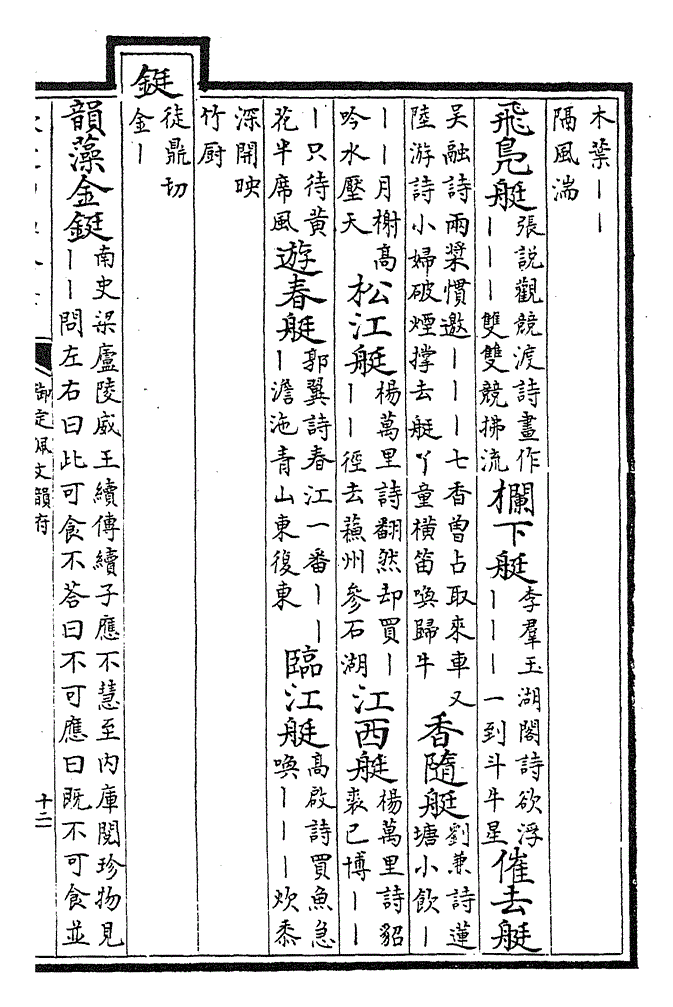 木葉丨丨
隔風湍
飛鳧艇
張說觀競渡詩畫作
丨丨丨雙雙競拂流
欄下艇
李羣玉湖閣詩欲浮
丨丨丨一到斗牛星
催去艇
吳融詩兩槳慣邀丨丨丨七香曾占取來車又
陸游詩小婦破煙撑去艇丫童橫笛喚歸牛
香隨艇
劉兼詩蓮
塘小飲丨
丨丨月榭高
吟水壓天
松江艇
楊萬里詩翻然却買丨
丨丨徑去蘓州參石湖
江西艇
楊萬里詩貂
裘已博丨丨
丨只待黄
花半席風
遊春艇
郭翼詩春江一番丨丨
丨澹沲青山東復東
臨江艇
高啟詩買魚急
喚丨丨丨炊黍
深開映
竹厨
鋌
徒鼎切
金丨
韻藻金鋌
南史梁廬陵威王續傳續子應不慧至内庫閱珍物見
丨丨問左右曰此可食不荅曰不可應曰既不可食並
御定佩文韻府
十二